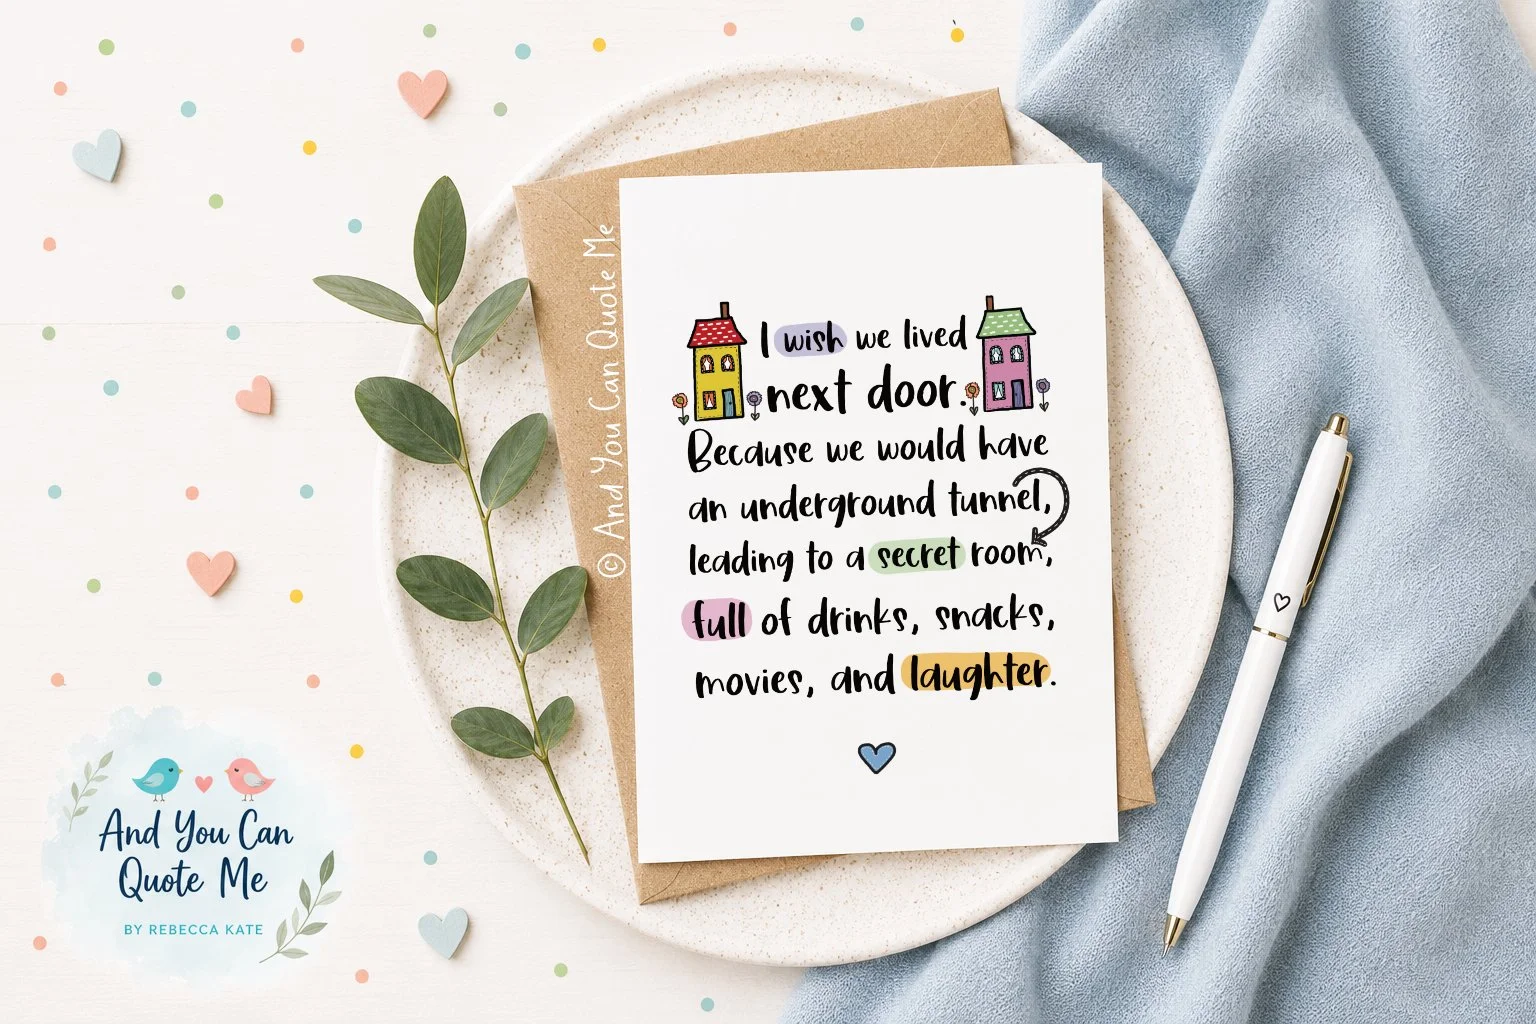 I wish we lived
next door.
Because we would have
an underground tunnel,
leading to a secret room,
full of drinks, snacks,
movies, and laughter.
© And You Can Quote Me
And You Can
Quote Me
BY REBECCA KATE